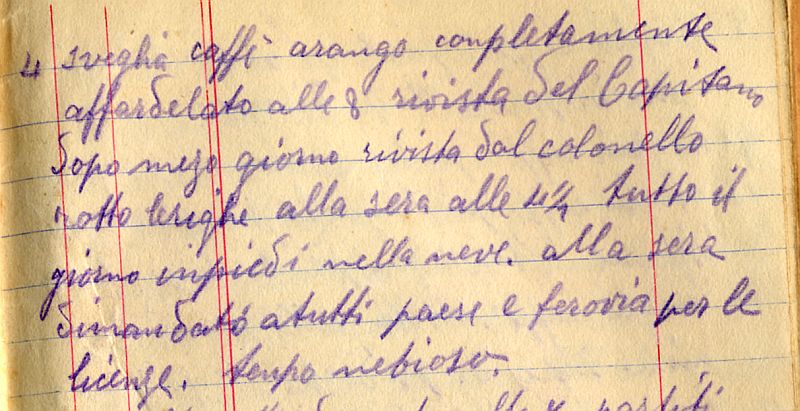 4 sveglia caffè arango conpletamente
affardelato alle 8 rivista del Capitano
Dopo mezo giorno rivista dal colonello
rotto le righe alla sera alle 4¼ tutto il
giorno inpiedi nella neve. alla sera
dimandato atutti paese e ferovia per le
licenze. tenpo nebioso.
alle partiti